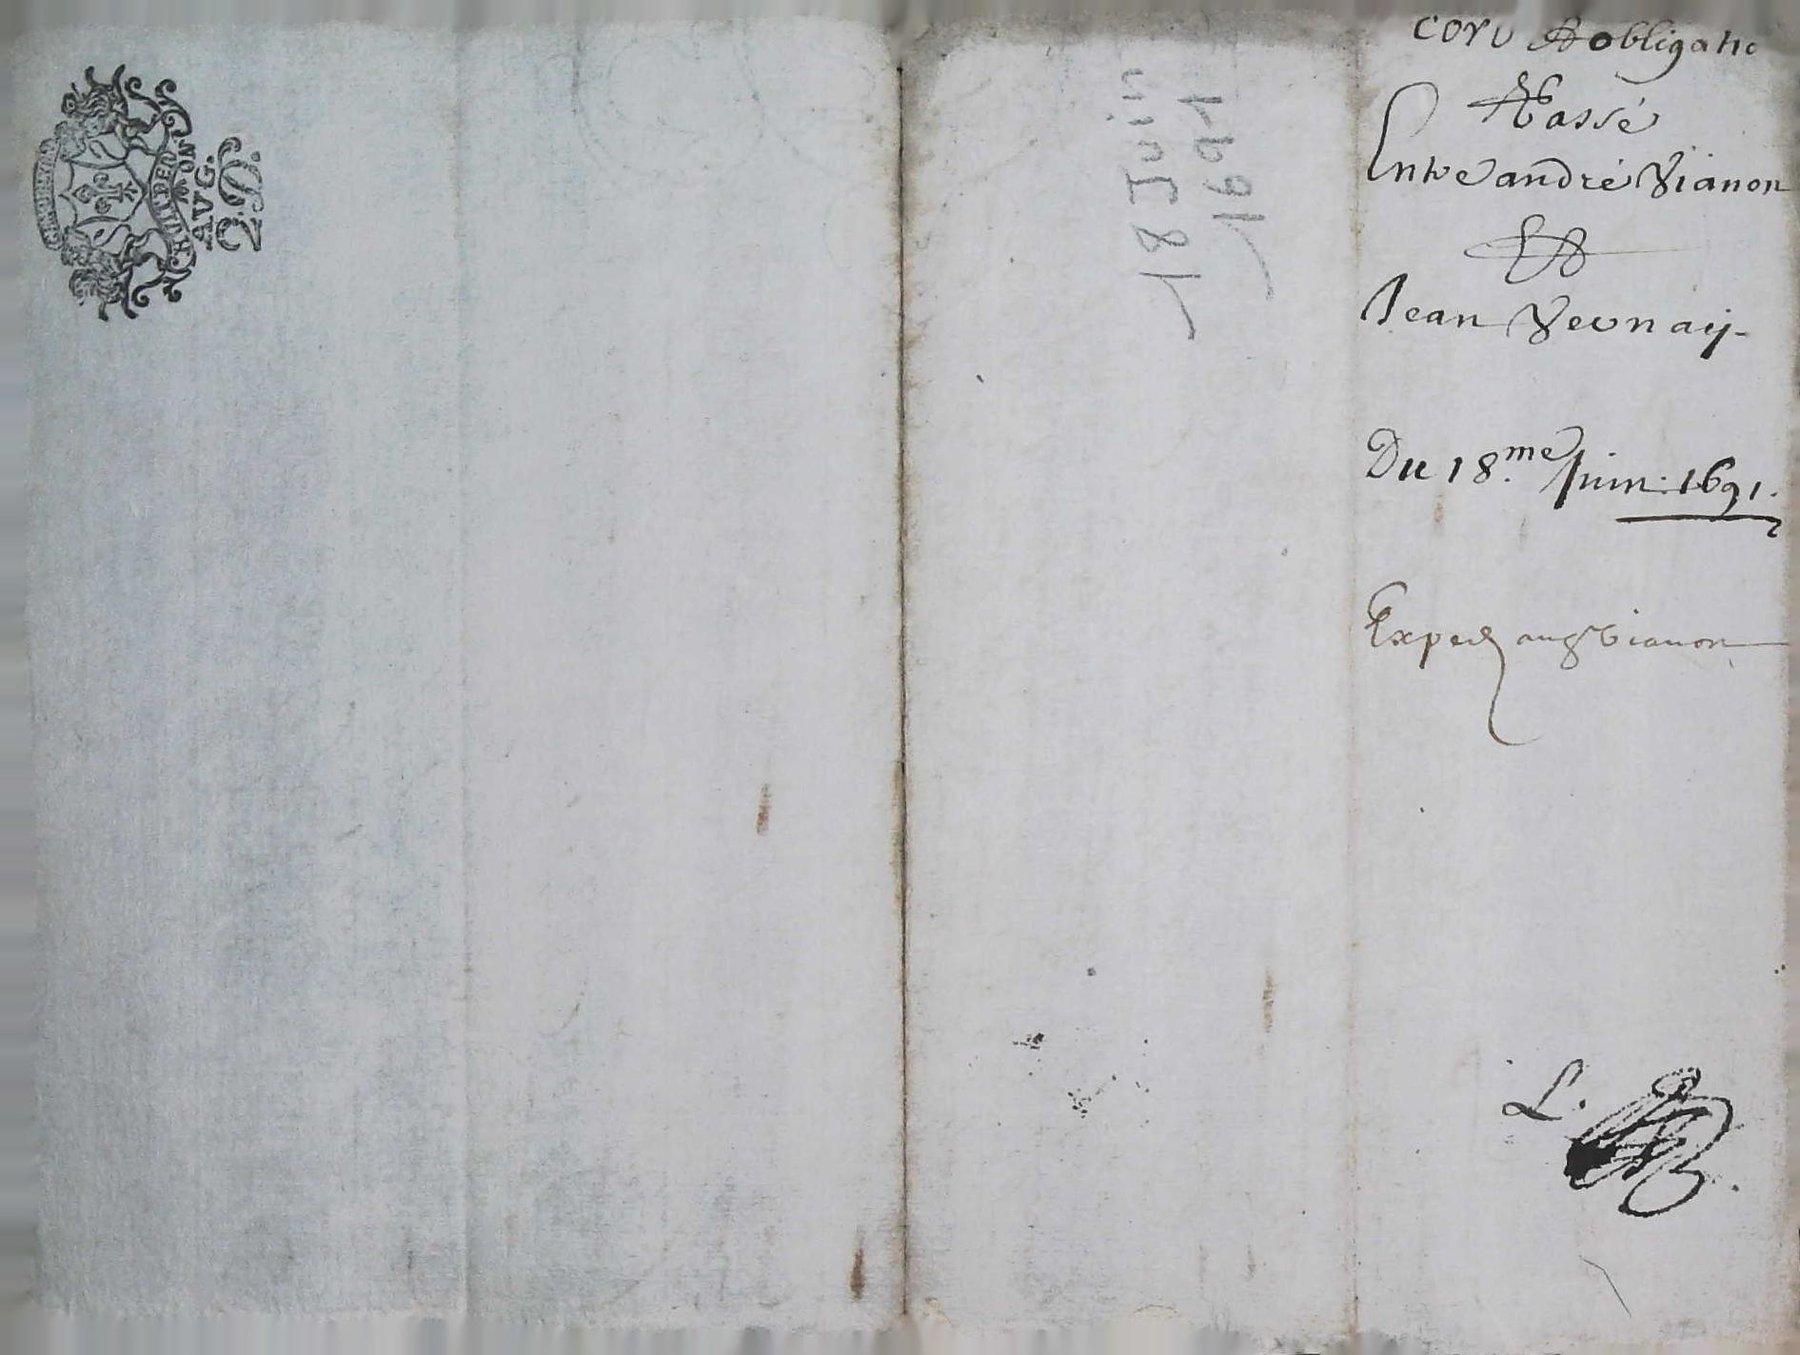 GENNORMAND
AVG.
2.D.
18 Juin
1691
obligatio
Passé
Entre andré Vianon
Et
Jean Vernay
Du 18.me Juin: 1691.
Exped aud Vianon
L.